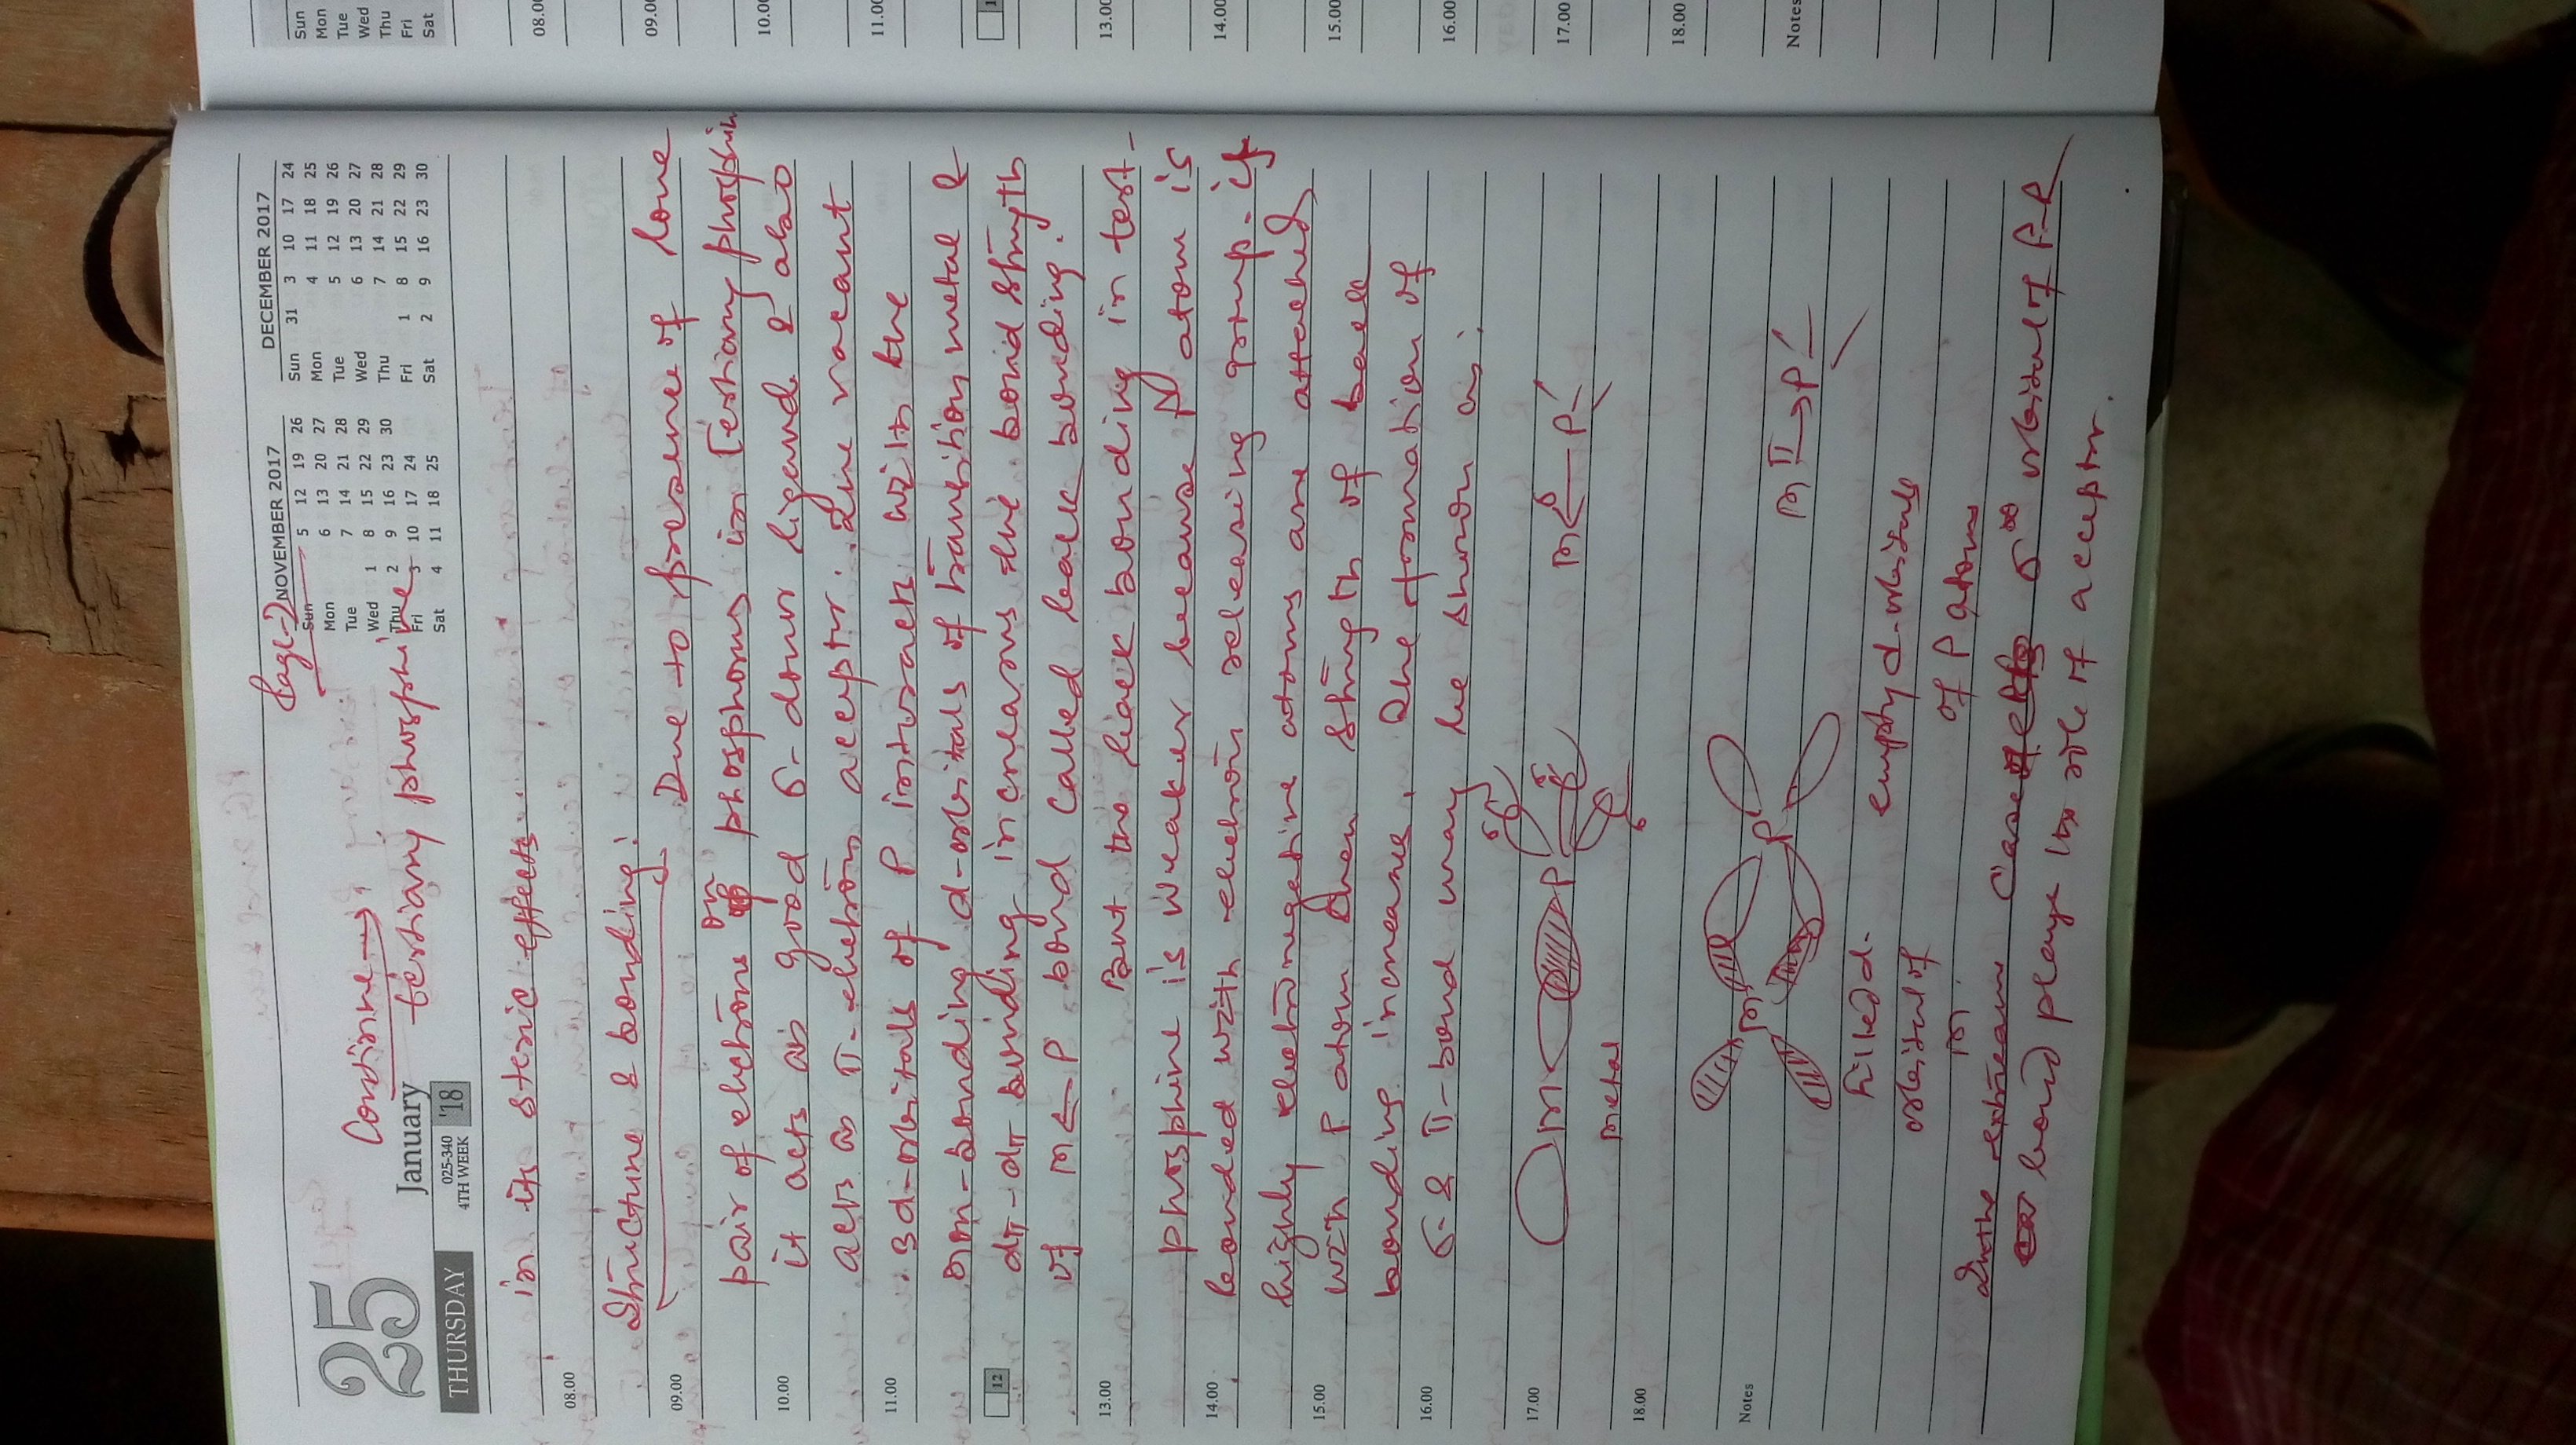 Page-2
Continue →
tertiary phosphine
25
January
THURSDAY
025-340
4TH WEEK
'18
NOVEMBER 2017
Sun 5 12 19 26
Mon 6 13 20 27
Tue 7 14 21 28
Wed 1 8 15 22 29
Thu 2 9 16 23 30
Fri 3 10 17 24
Sat 4 11 18 25
DECEMBER 2017
Sun 31 3 10 17 24
Mon 4 11 18 25
Tue 5 12 19 26
Wed 6 13 20 27
Thu 7 14 21 28
Fri 1 8 15 22 29
Sat 2 9 16 23 30
in its steric effects.
08.00
Structure & bonding:
09.00
Due to presence of lone
pair of electrons on phosphorus in tertiary phosphin
10.00
it acts as good σ-donor ligand & also
acts as π-electron acceptor. The vacant
11.00
3d-orbitals of P interacts with the
non-bonding d-orbitals of transition metal &
12
dπ-dπ bonding increases the bond strength
of M ← P bond called back bonding.
13.00
But the back bonding in tert-
phosphine is weaker because P atom is
14.00
bonded with electron releasing group. if
highly electronegative atoms are attached
15.00
with P atom then strength of back
bonding increases. The formation of
16.00
σ- & π-bond may be shown as:
17.00
M P
M ←σ P
metal
18.00
Notes
M P
M π→ P
filled d-
orbital of
M.
empty d-orbitals
of P atoms
In the extreme case σ* orbital of P-R
bond plays the role of acceptor.
Sun
Mon
Tue
Wed
Thu
Fri
Sat
08.00
09.00
10.00
11.00
13.00
14.00
15.00
16.00
17.00
18.00
Notes